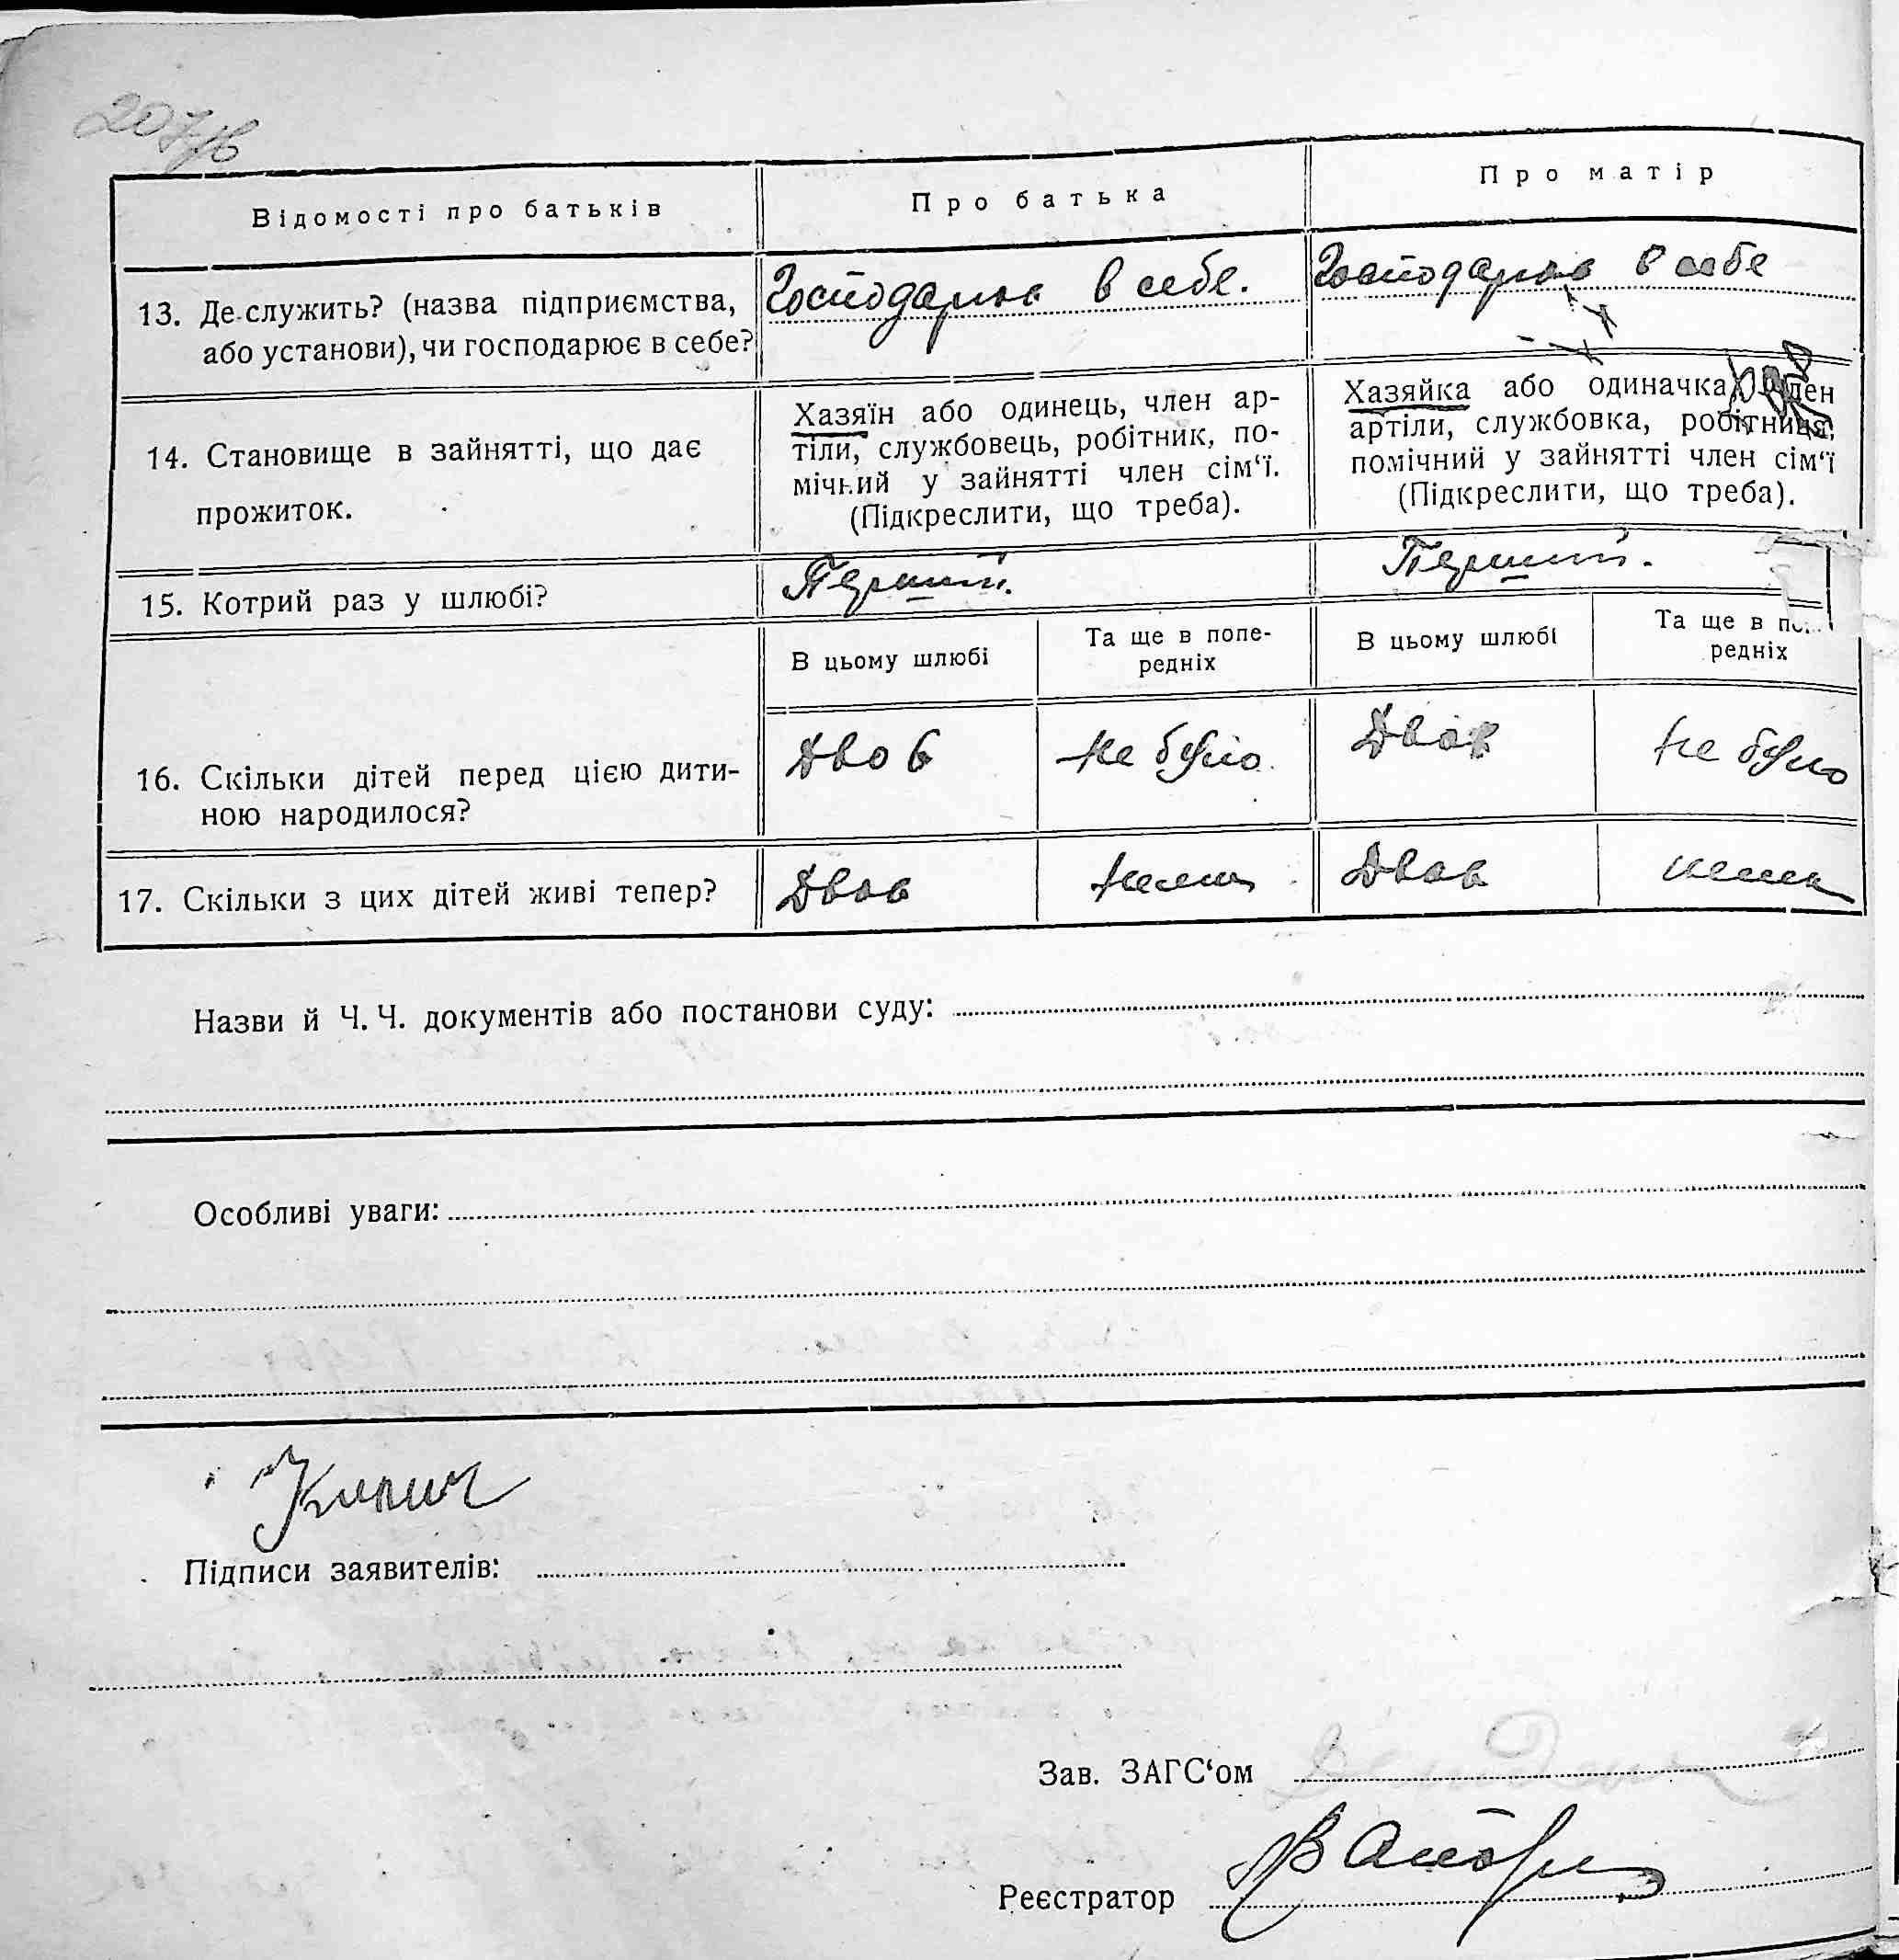 Відомості про батьків
Про батька
Про матір
13. Де служить? (назва підприємства,
або установи), чи господарює в себе?
Господарює в себе.
Господарює в себе
14. Становище в зайнятті, що дає
прожиток.
Хазяїн або одинець, член ар-
тіли, службовець, робітник, по-
мічний у зайнятті член сім‘ї.
(Підкреслити, що треба).
Хазяйка або одиначка, член
артіли, службовка, робітниця,
помічний у зайнятті член сім‘ї
(Підкреслити, що треба).
15. Котрий раз у шлюбі?
Перший.
Перший.
В цьому шлюбі
Та ще в попе-
редніх
В цьому шлюбі
Та ще в по
редніх
16. Скільки дітей перед цією дити-
ною народилося?
Двоє
Не було
Двоє
Не було
17. Скільки з цих дітей живі тепер?
Двоє
немає
Двоє
немає
Назви й Ч. Ч. документів або постанови суду:
Особливі уваги:
Підписи заявителів:
Зав. ЗАГС‘ом
Реєстратор